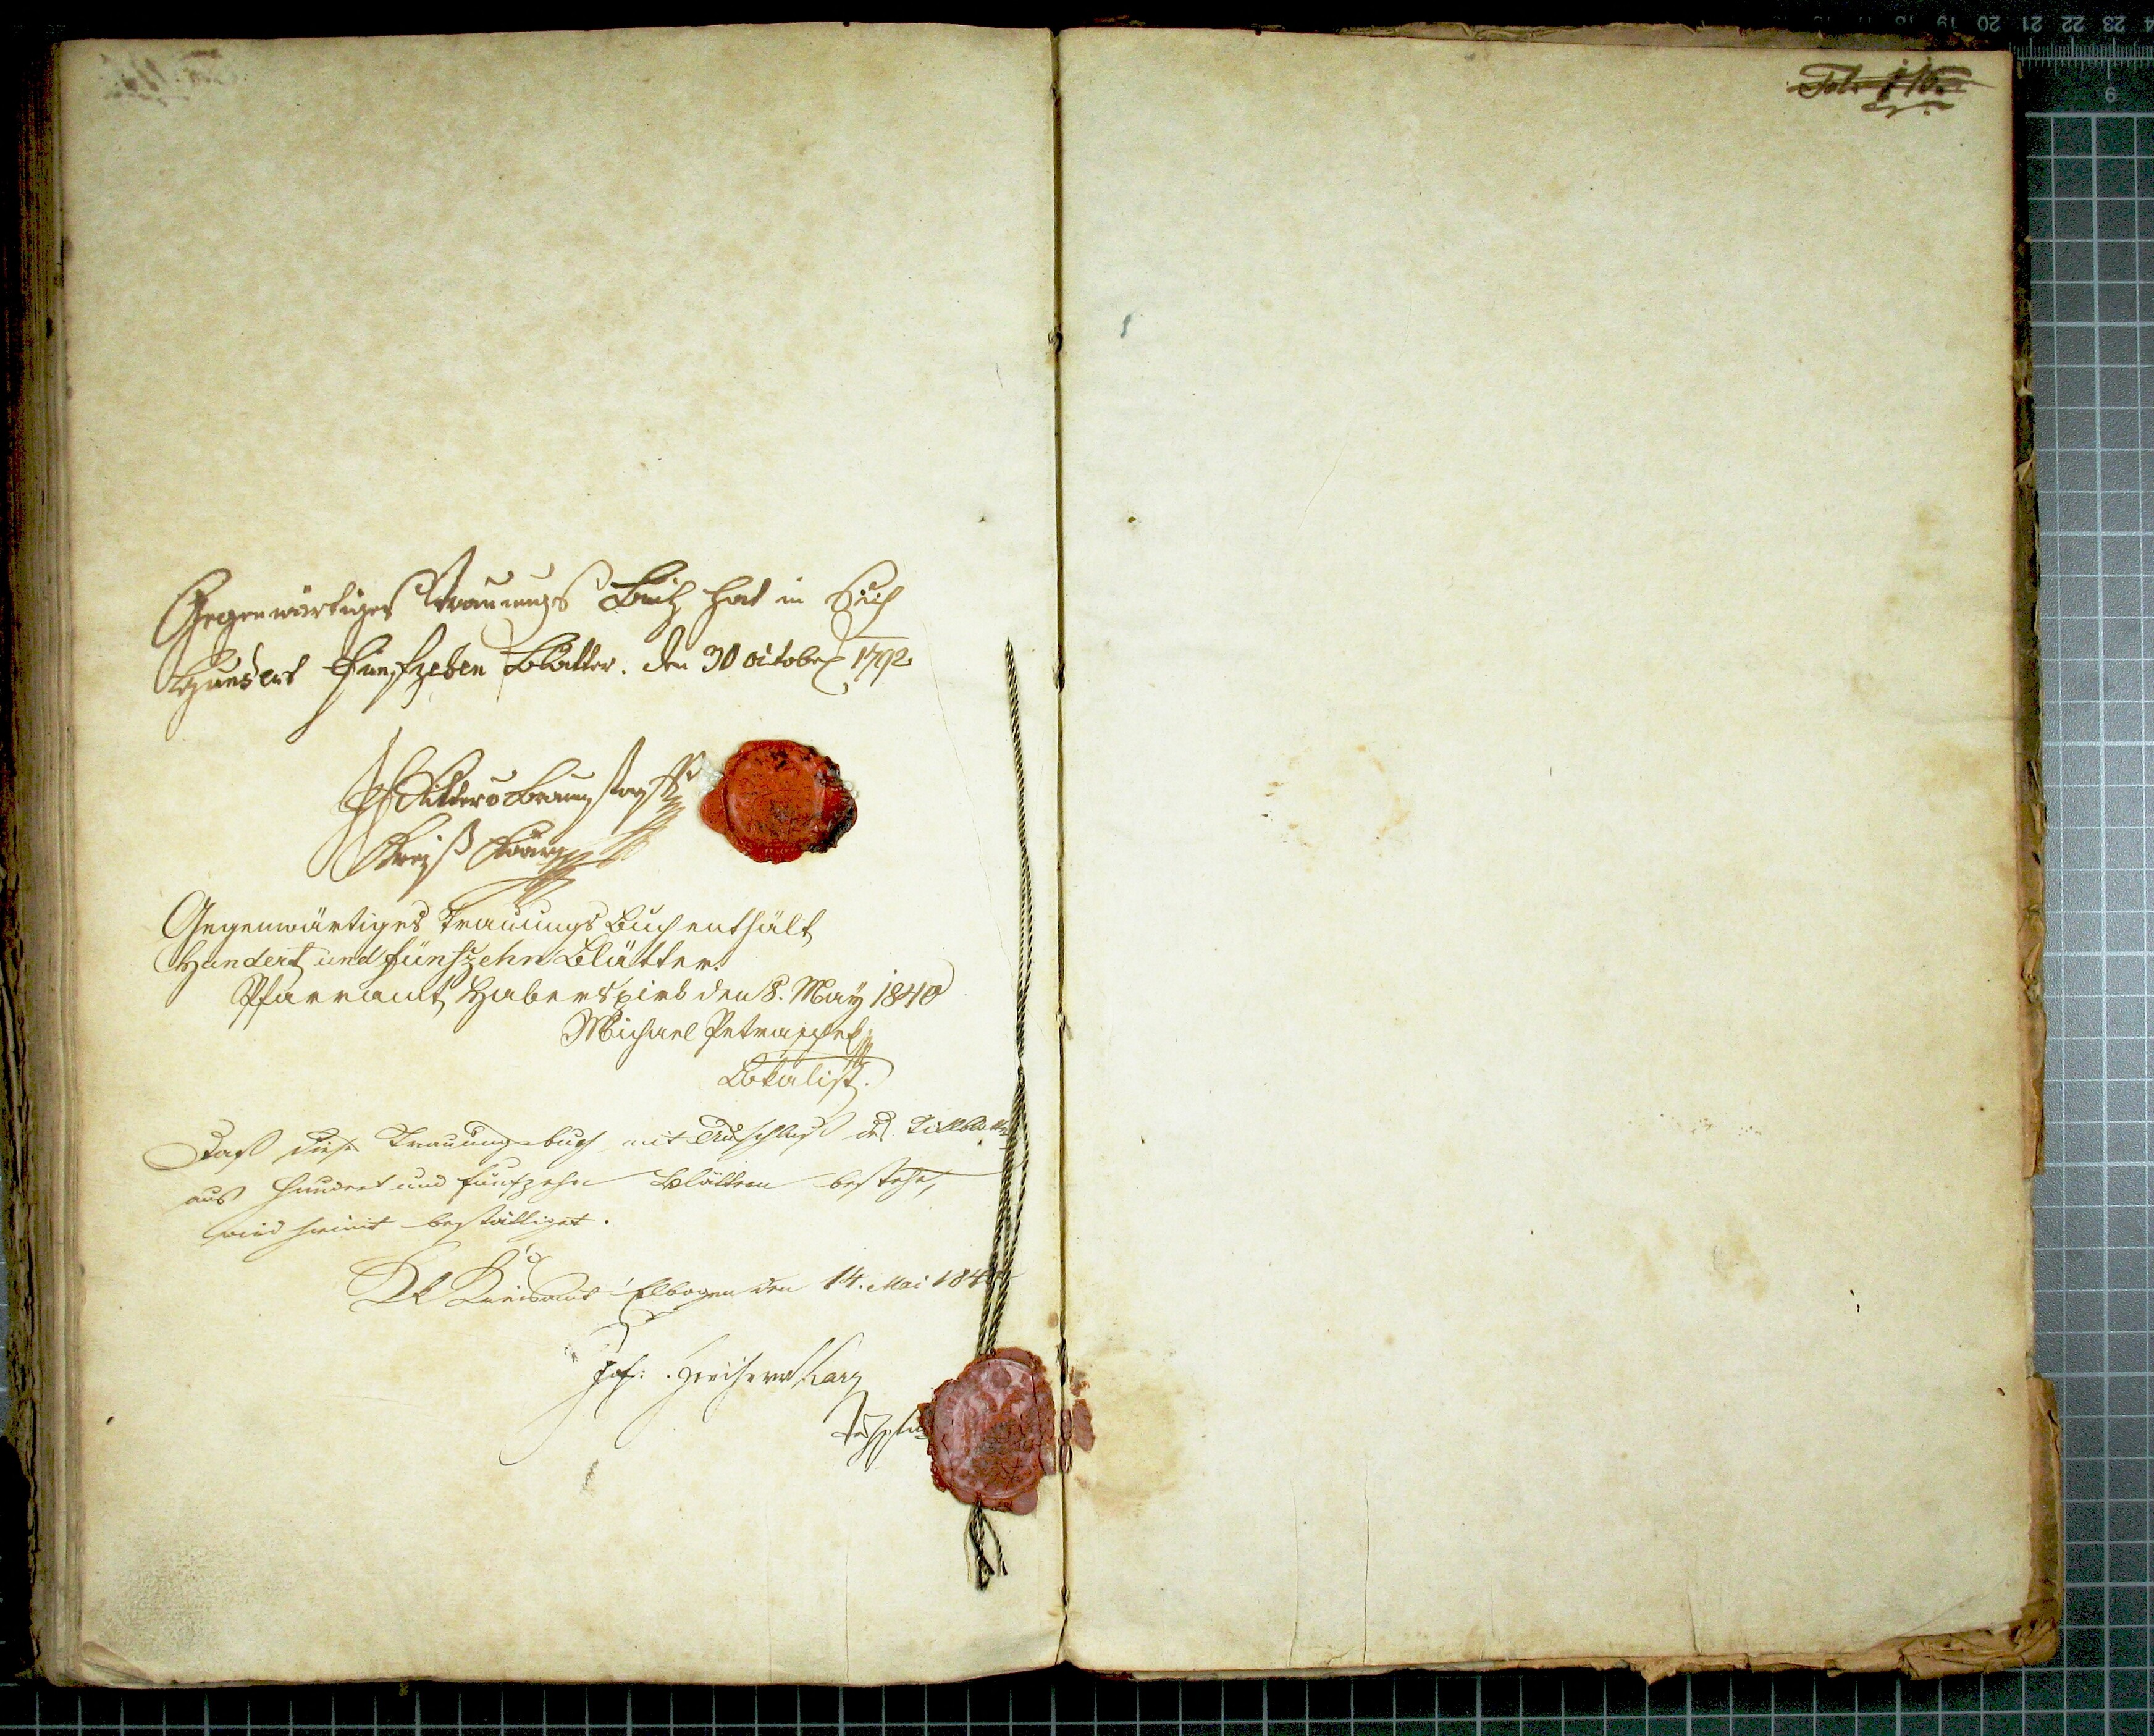 Fol. 116.
Gegenwärtiges Trauungs Buch hat in Sich
Hundert Funfzehen Blätter. den 30 october 1792
Kreiß
Gegenwärtiges Trauungs Buch enthält
Hundert und fünfzehn Blätter.
Pfarramt Haberspirk den 8. May 1840
Michael
Lokalist.
Daß diese Trauungsbuch mit Ausschluß des Titelblattes
aus hundert und fünfzehn Blättern bestehe,
wird hiemit bestättiget.
Kreisamt Elbogen den 14. Mai 184